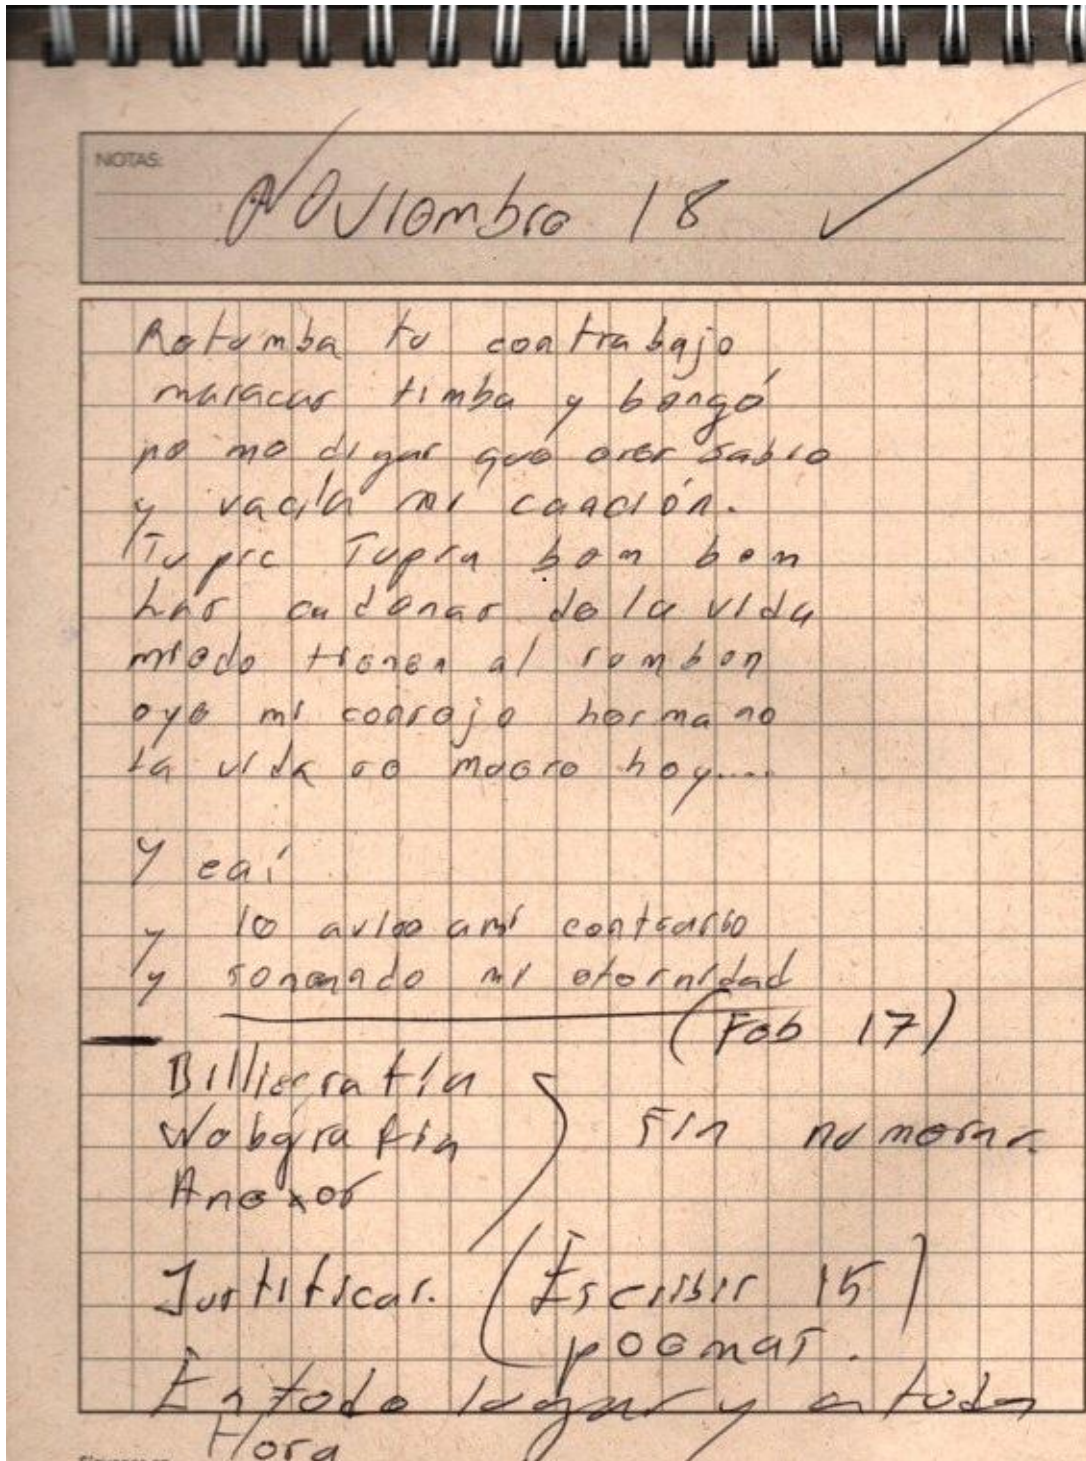 NOTAS:
Noviembre 18
Retumba tu contrabajo
maracas timba y bongó
no me digas que eres sabio
y vacila mi canción.
Tupra Tupra bom bom
has cadenas de la vida
miedo tienen al rumbon
oye mi consejo hermano
la vida se muere hoy....
y eaí
y le aviso ami contrario
y sonando mi eternidad
(Feb 17)
Webgrafía
Anexos
sin numerar
Justificar. (Escribir 15
poemas.)
En todo lugar y a toda
Hora